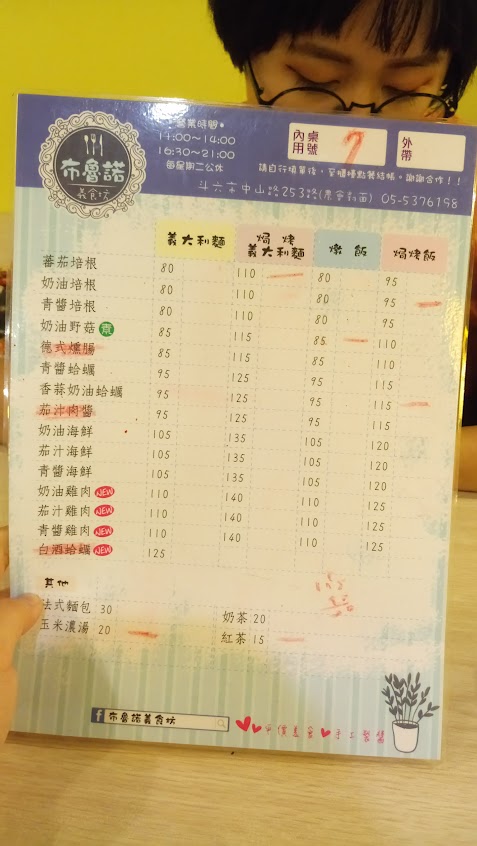 布魯諾
義食坊
*營業時間*
11:00~14:00
16:30~21:00
每星期二公休
內用
桌號
7
外帶
請自行填單後,至櫃檯點餐結帳。謝謝合作!!
斗六市中山路253號 05-5376198
義大利麵 焗烤義大利麵 燉飯 焗烤飯
蕃茄培根 80 110 80 95
奶油培根 80 110 80 95
青醬培根 80 110 80 95
奶油野菇 素 85 115 85 110
德式燻腸 85 115 85 110
青醬蛤蠣 95 125 95 115
香蒜奶油蛤蠣 95 125 95 115
茄汁肉醬 95 125 95 115
奶油海鮮 105 135 105 120
茄汁海鮮 105 135 105 120
青醬海鮮 105 135 105 120
奶油雞肉 NEW 110 140 110 125
茄汁雞肉 NEW 110 140 110 125
青醬雞肉 NEW 110 140 110 125
白酒蛤蠣 NEW 125
其他
法式麵包 30 奶茶 20
玉米濃湯 20 紅茶 15
f 布魯諾義食坊
平價美食 手工醬